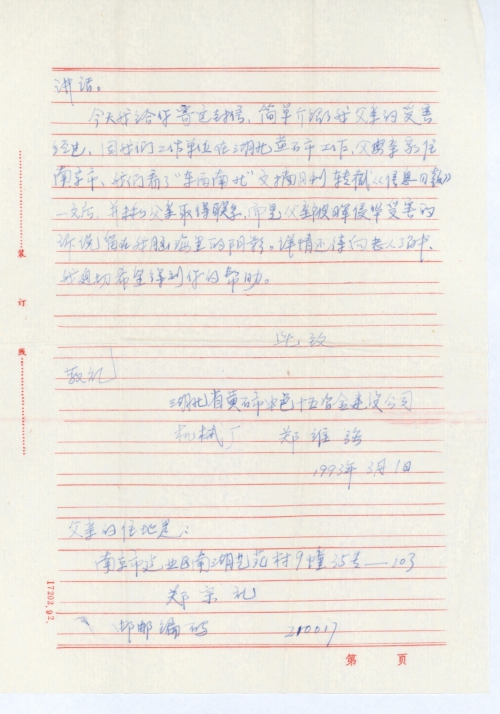 讲话。
今天我给你寄这封信，简单介绍了我父亲的受害
经过，因我们工作单位在湖北黄石市工作，父亲家住
南京市，我们看了"东西南北"文摘月刊转载《信息日报》
一文后，并和父亲取得联系，而是父亲被日军侵华受害的
诉说留在我脑海里的阴影。详情还待向老人了解、
我真切希望得到你的帮助。
此致
敬礼
湖北省黄石市中色十五冶金建设公司
机械厂 郑维强
1993年3月1日
父亲的住地是：
南京市建业区南湖艺苑村9幢35号—103
郑宗礼
邮编码 210017
装
订
线
17202.92.
第 页